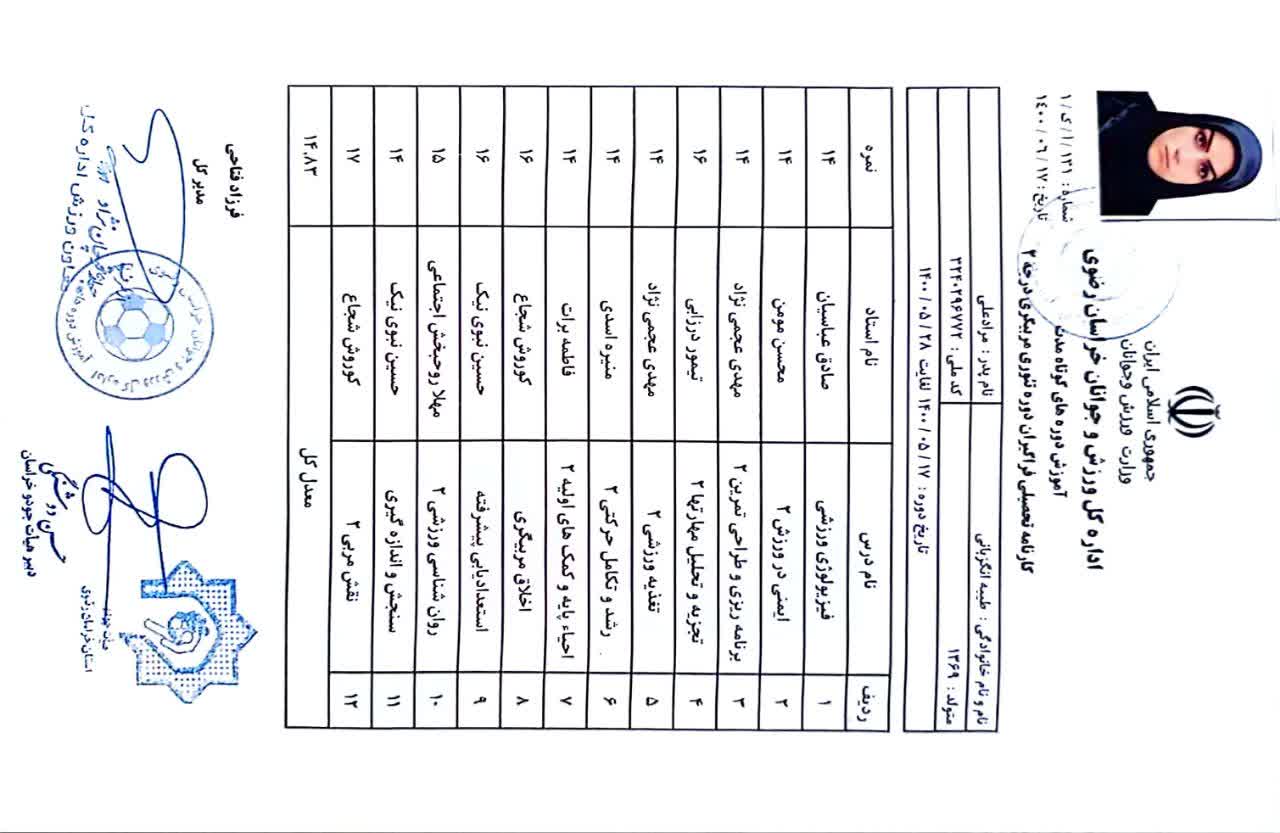 جمهوری اسلامی ایران
وزارت ورزش و جوانان
اداره کل ورزش و جوانان خراسان رضوی
آموزش دوره های کوتاه مدت
کارنامه تحصیلی فراگیران دوره تئوری مربیگری درجه ۲
شماره: ۱۲۱ / ۱ / ک / ۱
تاریخ: ۱۷ / ۰۶ / ۱۴۰۰
نام و نام خانوادگی : طیبه انگزبانی نام پدر : مرادعلی
متولد : ۱۳۶۹ کد ملی : ۲۲۴۰۲۹۶۷۷۲
تاریخ دوره : ۱۷ / ۰۵ / ۱۴۰۰ لغایت ۲۸ / ۰۵ / ۱۴۰۰
ردیف نام درس نام استاد نمره
۱ فیزیولوژی ورزشی صادق عباسیان ۱۴
۲ ایمنی در ورزش ۲ محسن مومن ۱۴
۳ برنامه ریزی و طراحی تمرین ۲ مهدی عجمی نژاد ۱۴
۴ تجزیه و تحلیل مهارتها ۲ تیمور درزابی ۱۶
۵ تغذیه ورزشی ۲ مهدی عجمی نژاد ۱۴
۶ رشد و تکامل حرکتی ۲ منیره اسدی ۱۴
۷ احیاء پایه و کمک های اولیه ۲ فاطمه برات ۱۴
۸ اخلاق مربیگری کوروش شجاع ۱۶
۹ استعدادیابی پیشرفته حسین نبوی نیک ۱۶
۱۰ روان شناسی ورزشی ۲ مهلا روحبخش اجتماعی ۱۵
۱۱ سنجش و اندازه گیری حسین نبوی نیک ۱۴
۱۲ نقش مربی ۲ کوروش شجاع ۱۷
معدل کل ۱۴.۸۳
فرزاد فتاحی
مدیر کل
معاون ورزش اداره کل
اداره کل ورزش و جوانان خراسان رضوی
دبیر هیات جودو خراسان
استان خراسان رضوی